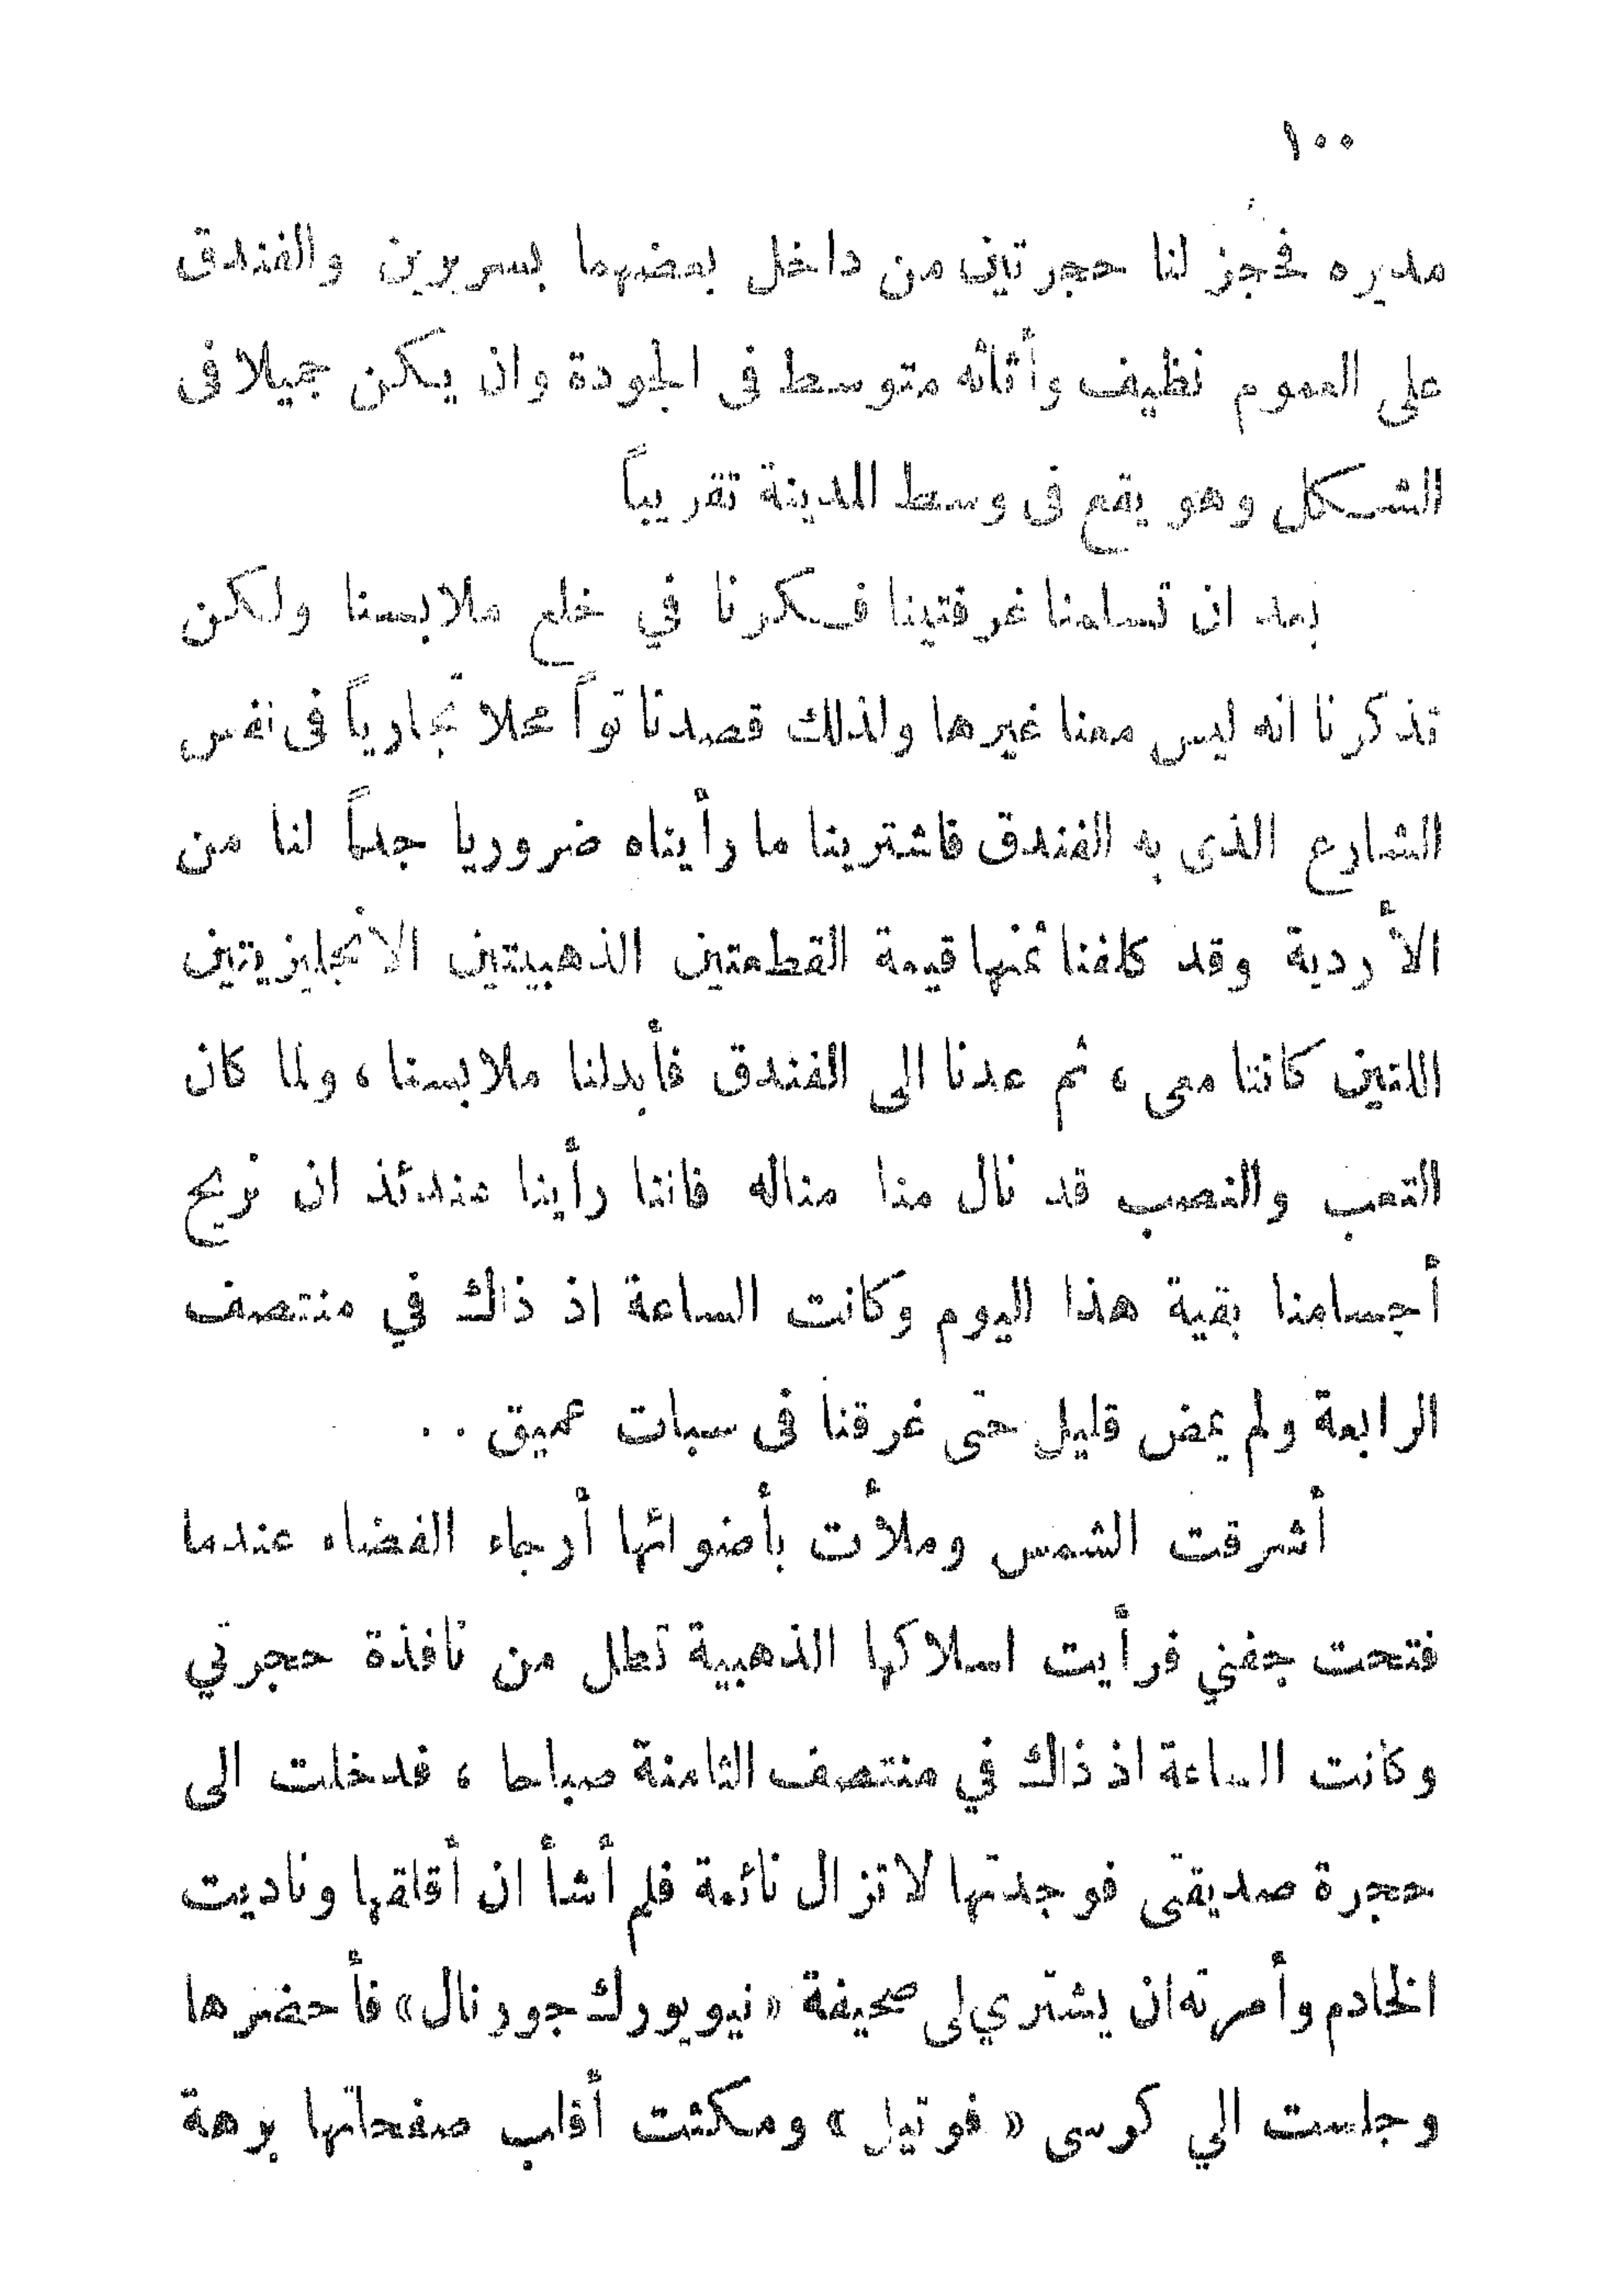 ١٠٠
مديره فحجز لنا حجرتين من داخل بعضهما بسريرين والفندق
على العموم نظيف وأثاثه متوسط فى الجودة وان يكن جميلا فى
الشكل وهو يقع فى وسط المدينة تقريباً
بعد ان تسلمنا غرفتينا فكرنا في خلع ملابسنا ولكن
تذكرنا انه ليس معنا غيرها ولذلك قصدنا تواً محلا تجارياً فى نفس
الشارع الذى به الفندق فاشترينا ما رأيناه ضروريا جداً لنا من
الأردية وقد كلفنا ثمنها قيمة القطعتين الذهبيتين الانجليزيتين
اللتين كانتا معى ، ثم عدنا الى الفندق فأبدلنا ملابسنا ، ولما كان
التعب والنصب قد نال منا مناله فاننا رأينا عندئذ ان نريح
أجسامنا بقية هذا اليوم وكانت الساعة اذ ذاك في منتصف
الرابعة ولم يمض قليل حتى غرقنا فى سبات عميق . .
أشرقت الشمس وملأت بأضوائها أرجاء الفضاء عندما
فتحت جفني فرأيت اسلاكها الذهبية تطل من نافذة حجرتي
وكانت الساعة اذ ذاك في منتصف الثامنة صباحا ، فدخلت الى
حجرة صديقتى فوجدتها لاتزال نائمة فلم أشأ ان أقلقها وناديت
الخادم وأمرته ان يشترى لى صحيفة «نيويورك جورنال» فأحضرها
وجلست الي كرسى « فوتيل » ومكثت أقلب صفحاتها برهة